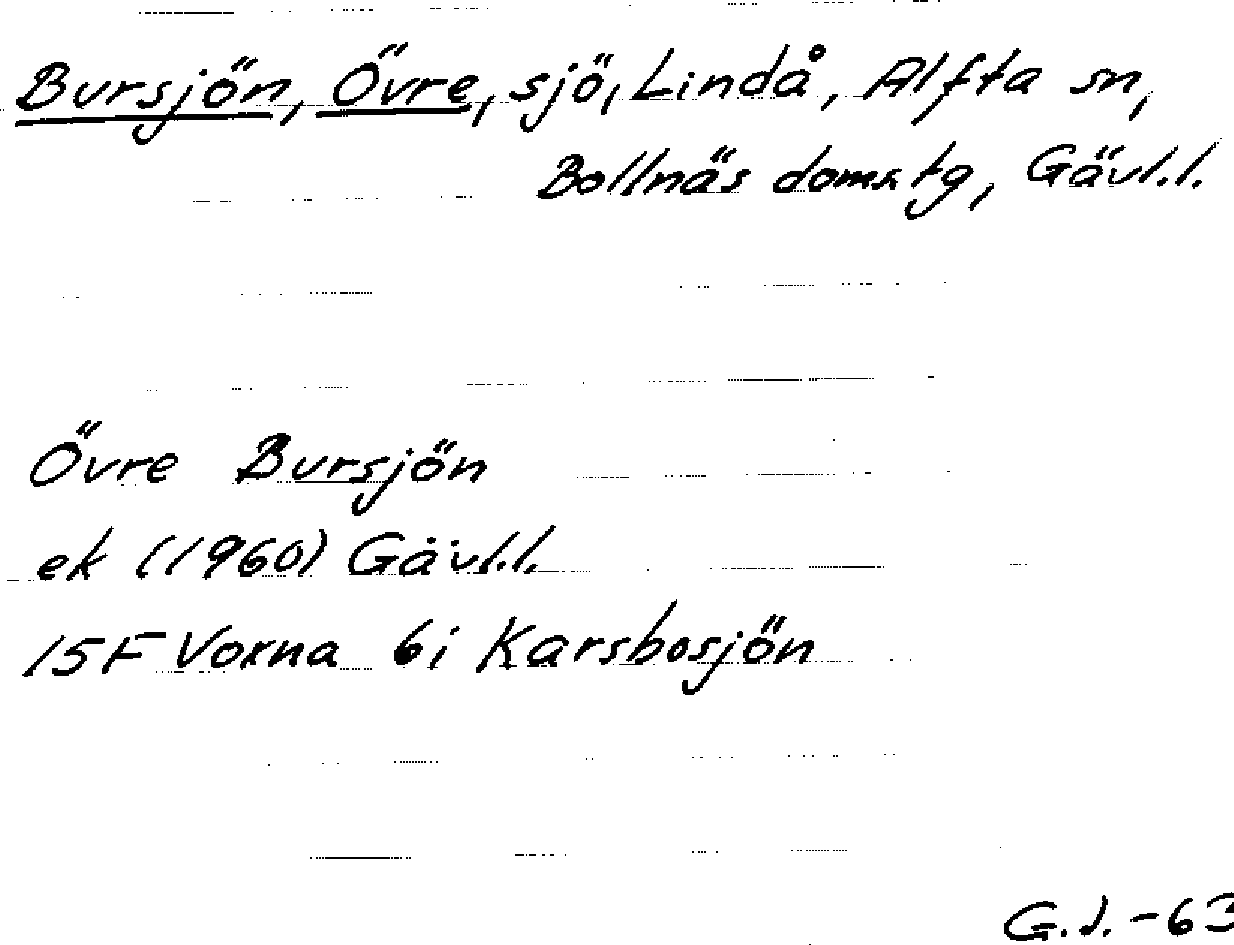 Bursjön, Övre, sjö, Lindå, Alfta sn,
Bollnäs domstg, Gävl.l.
Övre Bursjön
ek (1960) Gävl.l.
15F Voxna 6i Karsbosjön
G.J. -63